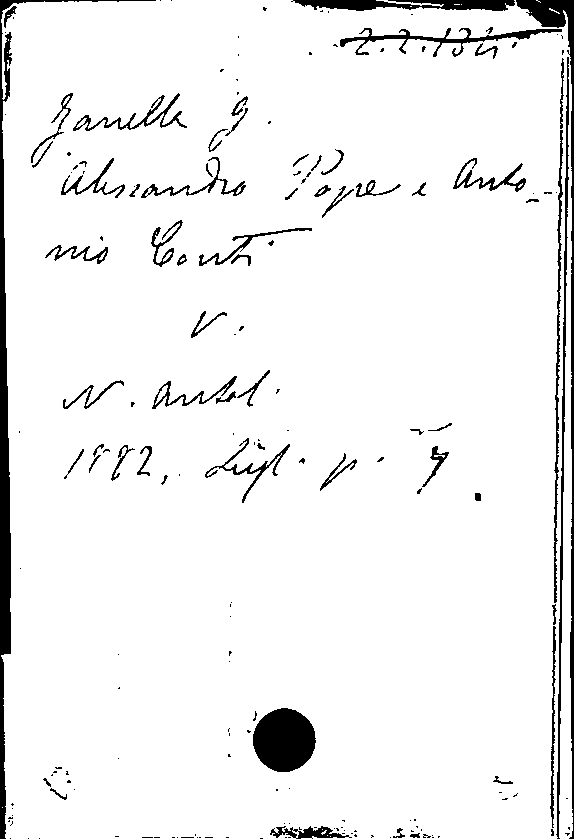 2.2.134.
Zanella G.
Alessandro Pope e Anto-
nio Conti
V.
N. Antol.
1882, Lugl. p. 7.